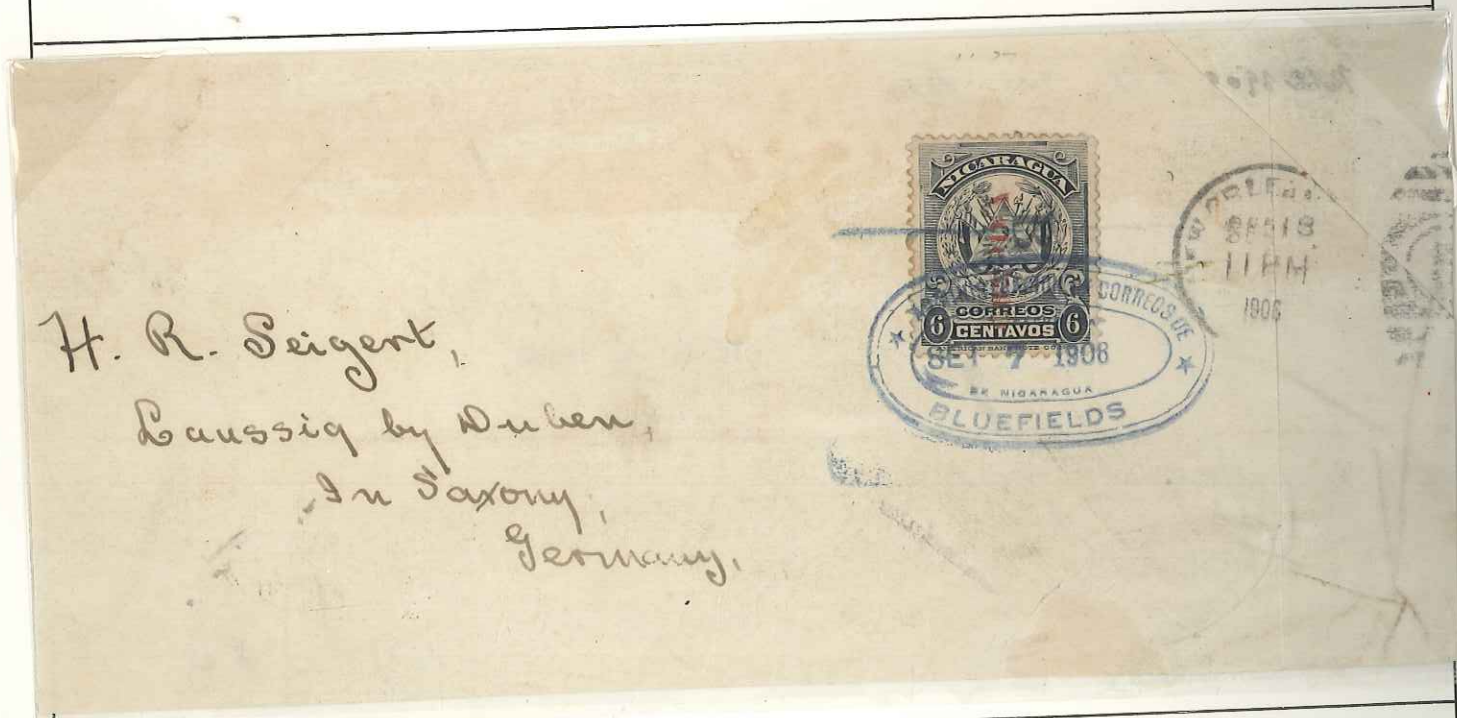 NICARAGUA
CORREOS
6 CENTAVOS 6
CORREOS DE
SET 7 1906
DE NICARAGUA
BLUEFIELDS
11 PM
1906
H. R. Seigert,
Laussig by Duben,
In Saxony,
Germany.